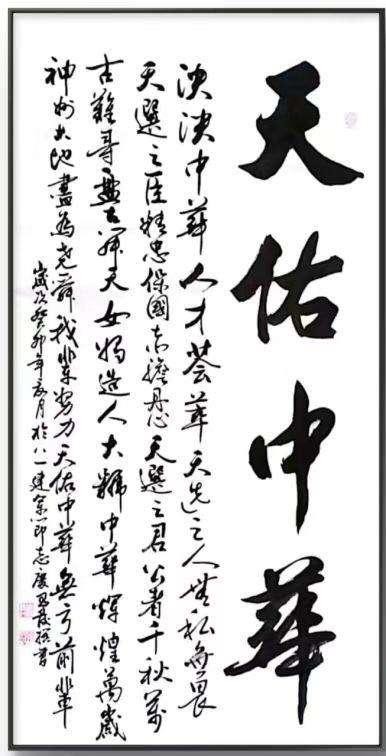 天佑中華
泱泱中華人才荟華天选之人無私無畏
天選之臣精忠保國赤膽丹心天選之君公者千秋萬
古難尋盤古天女媧造人大中華輝煌萬歲
神州大地盡為堯舜我輩努力天佑中華無亏前輩
歲次癸卯年月於八一建軍節志慶撰書